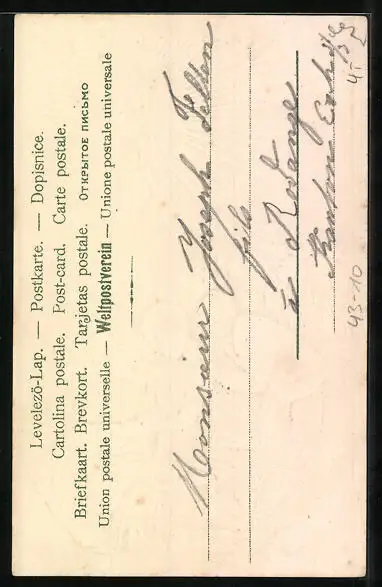 Levelező-Lap. — Postkarte. — Dopisnice.
Cartolina postale. Post-card. Carte postale.
Briefkaart. Brevkort. Tarjetas postale. Открытое письмо
Union postale universelle — Weltpostverein — Unione postale universale
Monsieur Joseph Fellen
fils
à Rodange
Kanton Esch
43-10
4.-